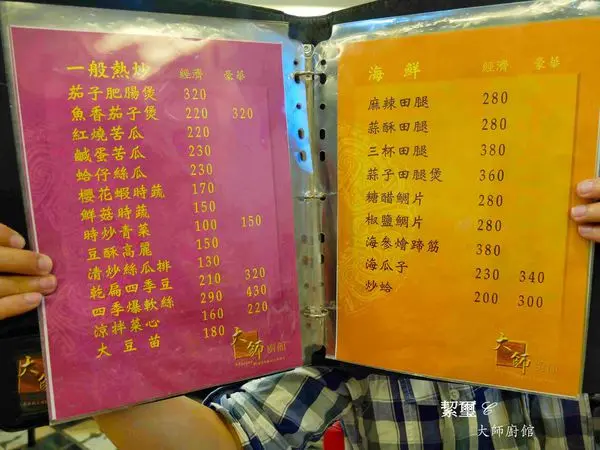 一般熱炒 經濟 豪華
茄子肥腸煲 320
魚香茄子煲 220 320
紅燒苦瓜 220
鹹蛋苦瓜 230
蛤仔絲瓜 230
櫻花蝦時蔬 170
鮮菇時蔬 150
時炒青菜 100 150
豆酥高麗 150
清炒絲瓜排 130
乾扁四季豆 210 320
四季爆軟絲 290 430
涼拌菜心 160 220
大豆苗 180
大師廚館
海鮮 經濟 豪華
麻辣田腿 280
蒜酥田腿 280
三杯田腿 380
蒜子田腿煲 360
糖醋鯛片 280
椒鹽鯛片 280
海參燴蹄筋 380
海瓜子 230 340
炒蛤 200 300
大師
大師
絜璽&
大師廚館